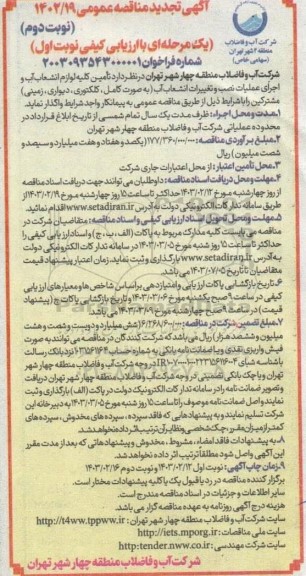 آگهی تجدید مناقصه عمومی ۱۴۰۲/۱۹
(نوبت دوم)
(یک مرحله‌ای با ارزیابی کیفی نوبت اول)
شماره فراخوان: ۲۰۰۳۰۹۳۵۴۳۰۰۰۰۰۱
شرکت آب و فاضلاب
منطقه ۴ شهر تهران
(سهامی خاص)
شرکت آب و فاضلاب منطقه چهار شهر تهران در نظر دارد تأمین کلیه لوازم انشعاب آب و
اجرای عملیات نصب و تغییرات انشعاب آب (به صورت کامل، کلکتوری، دیواری، زمینی)
مشترکین را با شرایط ذیل از طریق مناقصه عمومی به پیمانکار واجد شرایط واگذار نماید.
۱. مدت و محل اجرا: ظرف مدت یک سال تمام شمسی از تاریخ ابلاغ قرارداد در
محدوده عملیاتی شرکت آب و فاضلاب منطقه چهار شهر تهران
۲. مبلغ برآوردی مناقصه: (یکصد و هفتاد و هفت میلیارد و سیصد و
شصت میلیون) ریال
۳. محل تأمین اعتبار: از محل اعتبارات جاری شرکت
۴. مهلت و محل دریافت اسناد مناقصه: داوطلبان می توانند جهت دریافت اسناد مناقصه
از روز چهارشنبه مورخ ۱۴۰۳/۰۲/۱۲ حداکثر تا ساعت ۱۵ روز چهارشنبه مورخ ۱۴۰۳/۰۲/۱۹ از
طریق سامانه تدارکات الکترونیکی دولت به آدرس www.setadiran.ir اقدام نمایند.
۵. مهلت و محل تحویل اسناد ارزیابی کیفی و اسناد مناقصه: متقاضیان شرکت در
مناقصه می بایست کلیه مدارک مربوط به پاکات (الف، ب، ج) و اسناد ارزیابی کیفی را
حداکثر تا ساعت ۱۵ روز شنبه مورخ ۱۴۰۳/۰۳/۰۵ در سامانه تدارکات الکترونیکی دولت
به آدرس www.setadiran.ir بارگذاری و ثبت نماید. زمان اعتبار پیشنهاد قیمت
متقاضیان تا تاریخ ۱۴۰۳/۰۷/۰۵ می باشد.
۶. تاریخ بازگشایی پاکات ارزیابی و امتیازدهی بر اساس شاخص ها و معیارهای ارزیابی
کیفی در ساعت ۹ صبح یکشنبه مورخ ۱۴۰۳/۰۳/۰۶ و تاریخ بازگشایی پاکات ج (پیشنهاد
قیمت) در ساعت ۹ صبح مورخ می باشد.
۷. مبلغ تضمین شرکت در مناقصه: (شش میلیارد و دویست و شصت و هشت
میلیون و ششصد هزار) ریال می باشد که شرکت کنندگان در مناقصه می توانند به صورت
فیش واریزی نقدی و یا ضمانت نامه بانکی به شماره حساب نزد بانک رسالت
با شناسه شبای در وجه شرکت آب و فاضلاب منطقه چهار شهر
تهران و یا چک بانکی تضمینی در وجه شرکت آب و فاضلاب منطقه چهار شهر تهران دریافت
و تصویر ضمانت نامه را در سامانه تدارکات الکترونیک دولت در پاکت (الف) بارگذاری و ثبت
نمایند و اصل ضمانت نامه موصوف را تا ساعت ۱۵ روز شنبه مورخ ۱۴۰۳/۰۳/۰۵ به دبیرخانه این
شرکت تسلیم نمایند و به پیشنهادهایی که فاقد سپرده، سپرده های مخدوش، سپرده های
کمتر از میزان مقرر، چک شخصی و نظایر آن ترتیب اثر داده نخواهد شد.
۸. به پیشنهادات فاقد امضاء، مشروط، مخدوش و پیشنهادهایی که بعد از مدت مقرر
این آگهی واصل شود مطلقاً ترتیب اثر داده نخواهد شد.
۹. زمان چاپ آگهی: نوبت اول ۱۴۰۳/۰۲/۱۲ و نوبت دوم ۱۴۰۳/۰۲/۱۶
برگزار کننده مناقصه در رد یا قبول یک یا کلیه پیشنهادات مختار است.
سایر اطلاعات و جزئیات در اسناد مناقصه مندرج است.
هزینه درج آگهی روزنامه به عهده مناقصه گزار می باشد.
سایت شرکت آب و فاضلاب منطقه چهار شهر تهران: http://t4ww.tppww.ir
سایت ملی مناقصات: http://iets.mporg.ir
سایت شرکت مهندسی: http:tender.nww.co.ir
شرکت آب و فاضلاب منطقه چهار شهر تهران